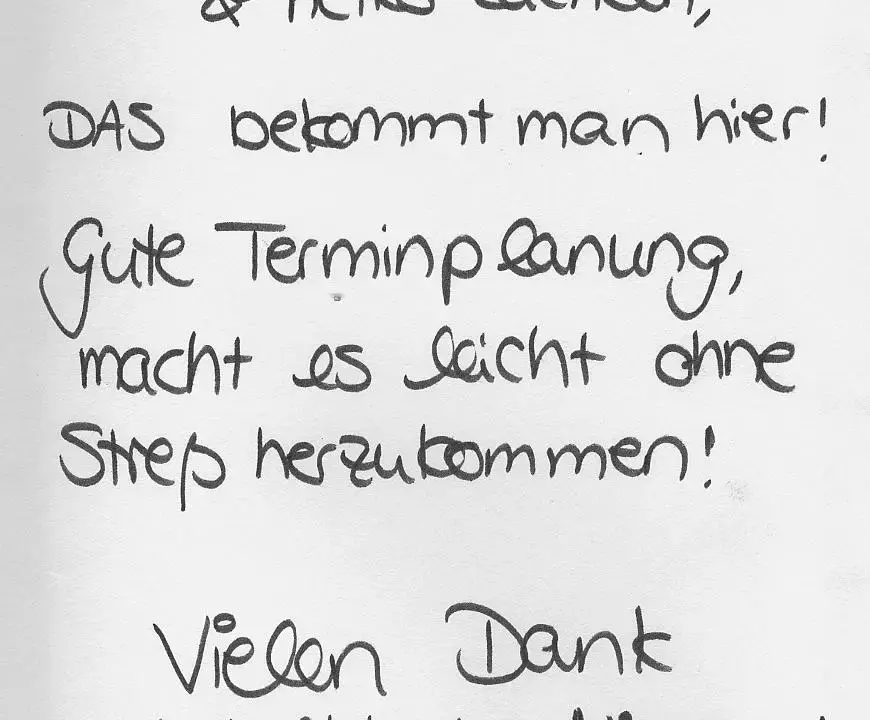 &
DAS bekommt man hier!
Gute Terminplanung,
macht es leicht ohne
Streß herzukommen!
Vielen Dank